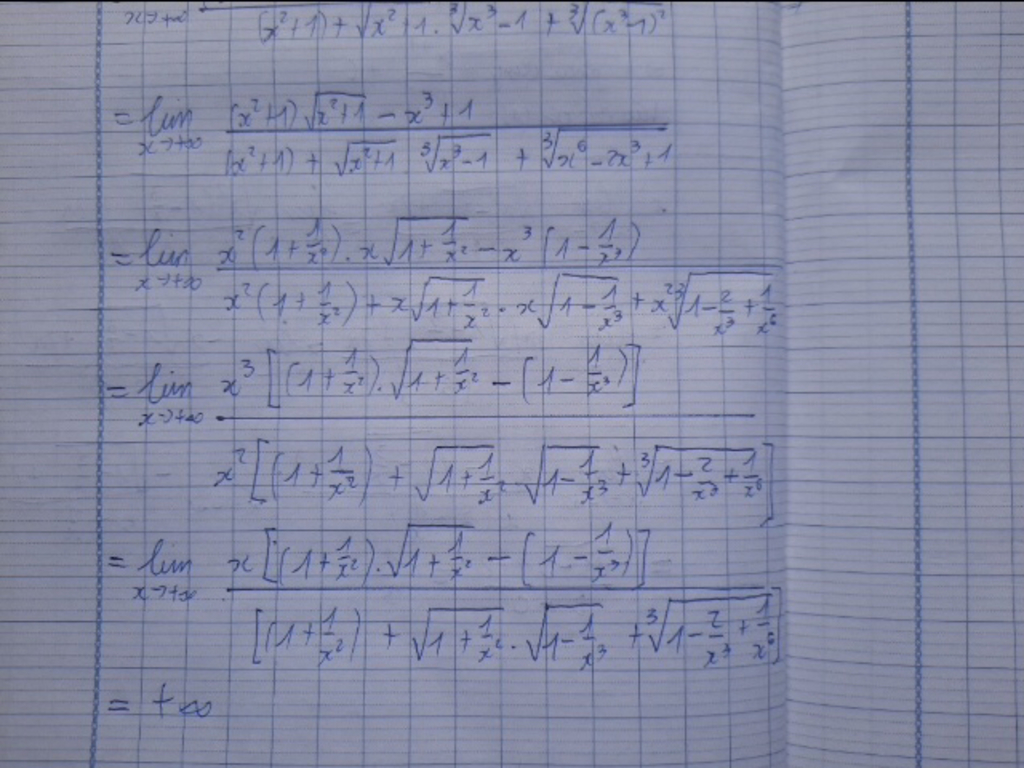 lim x→+∞ (x²+1) + √(x²+1) · ∛(x³-1) + ∛((x³-1)²)
= lim x→+∞ ((x²+1) √(x²+1) - x³ + 1) / ((x²+1) + √(x²+1) ∛(x³-1) + ∛(x⁶-2x³+1))
= lim x→+∞ (x²(1+1/x²) · x√(1+1/x²) - x³(1-1/x³)) / (x²(1+1/x²) + x√(1+1/x²) · x√(1-1/x³) + x²∛(1-2/x³+1/x⁶))
= lim x→+∞ (x³[(1+1/x²) · √(1+1/x²) - (1-1/x³)]) / (x²[(1+1/x²) + √(1+1/x²) · √(1-1/x³) + ∛(1-2/x³+1/x⁶)])
= lim x→+∞ (x[(1+1/x²) · √(1+1/x²) - (1-1/x³)]) / ([(1+1/x²) + √(1+1/x²) · √(1-1/x³) + ∛(1-2/x³+1/x⁶)])
= +∞